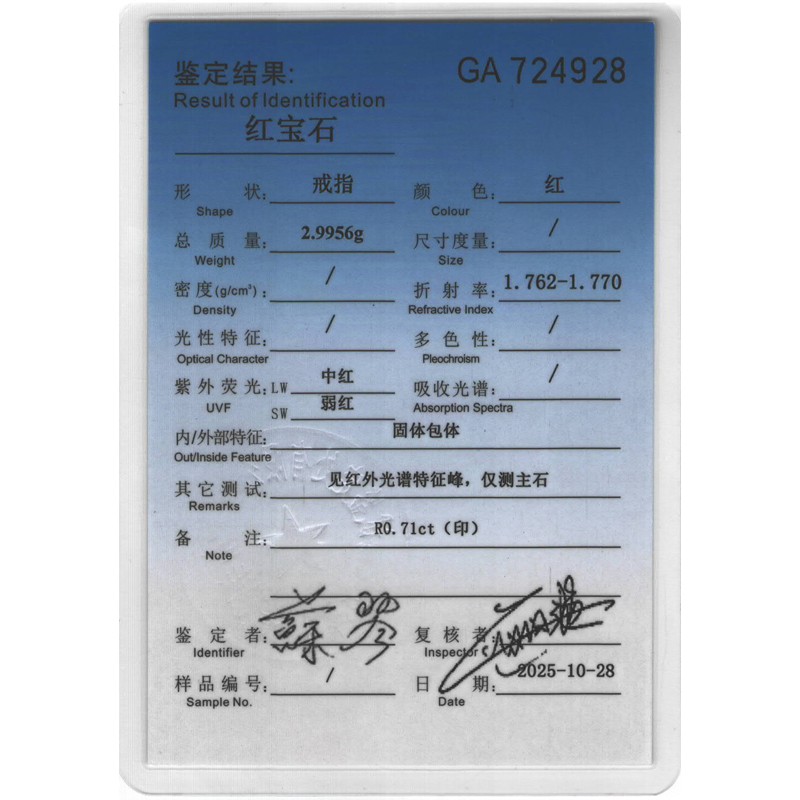 鉴定结果: GA 724928
Result of Identification
红宝石
形 状: 戒指 颜 色: 红
Shape Colour
总 质 量: 2.9956g 尺寸度量: /
Weight Size
密 度(g/cm³): / 折 射 率: 1.762-1.770
Density Refractive Index
光性特征: / 多 色 性: /
Optical Character Pleochroism
紫外荧光: LW 中红 吸收光谱: /
UVF SW 弱红 Absorption Spectra
内/外部特征: 固体包体
Out/Inside Feature
其它测试: 见红外光谱特征峰，仅测主石
Remarks
备 注: R0.71ct（印）
Note
鉴 定 者: 复 核 者:
Identifier Inspector
样品编号: / 日 期: 2025-10-28
Sample No. Date